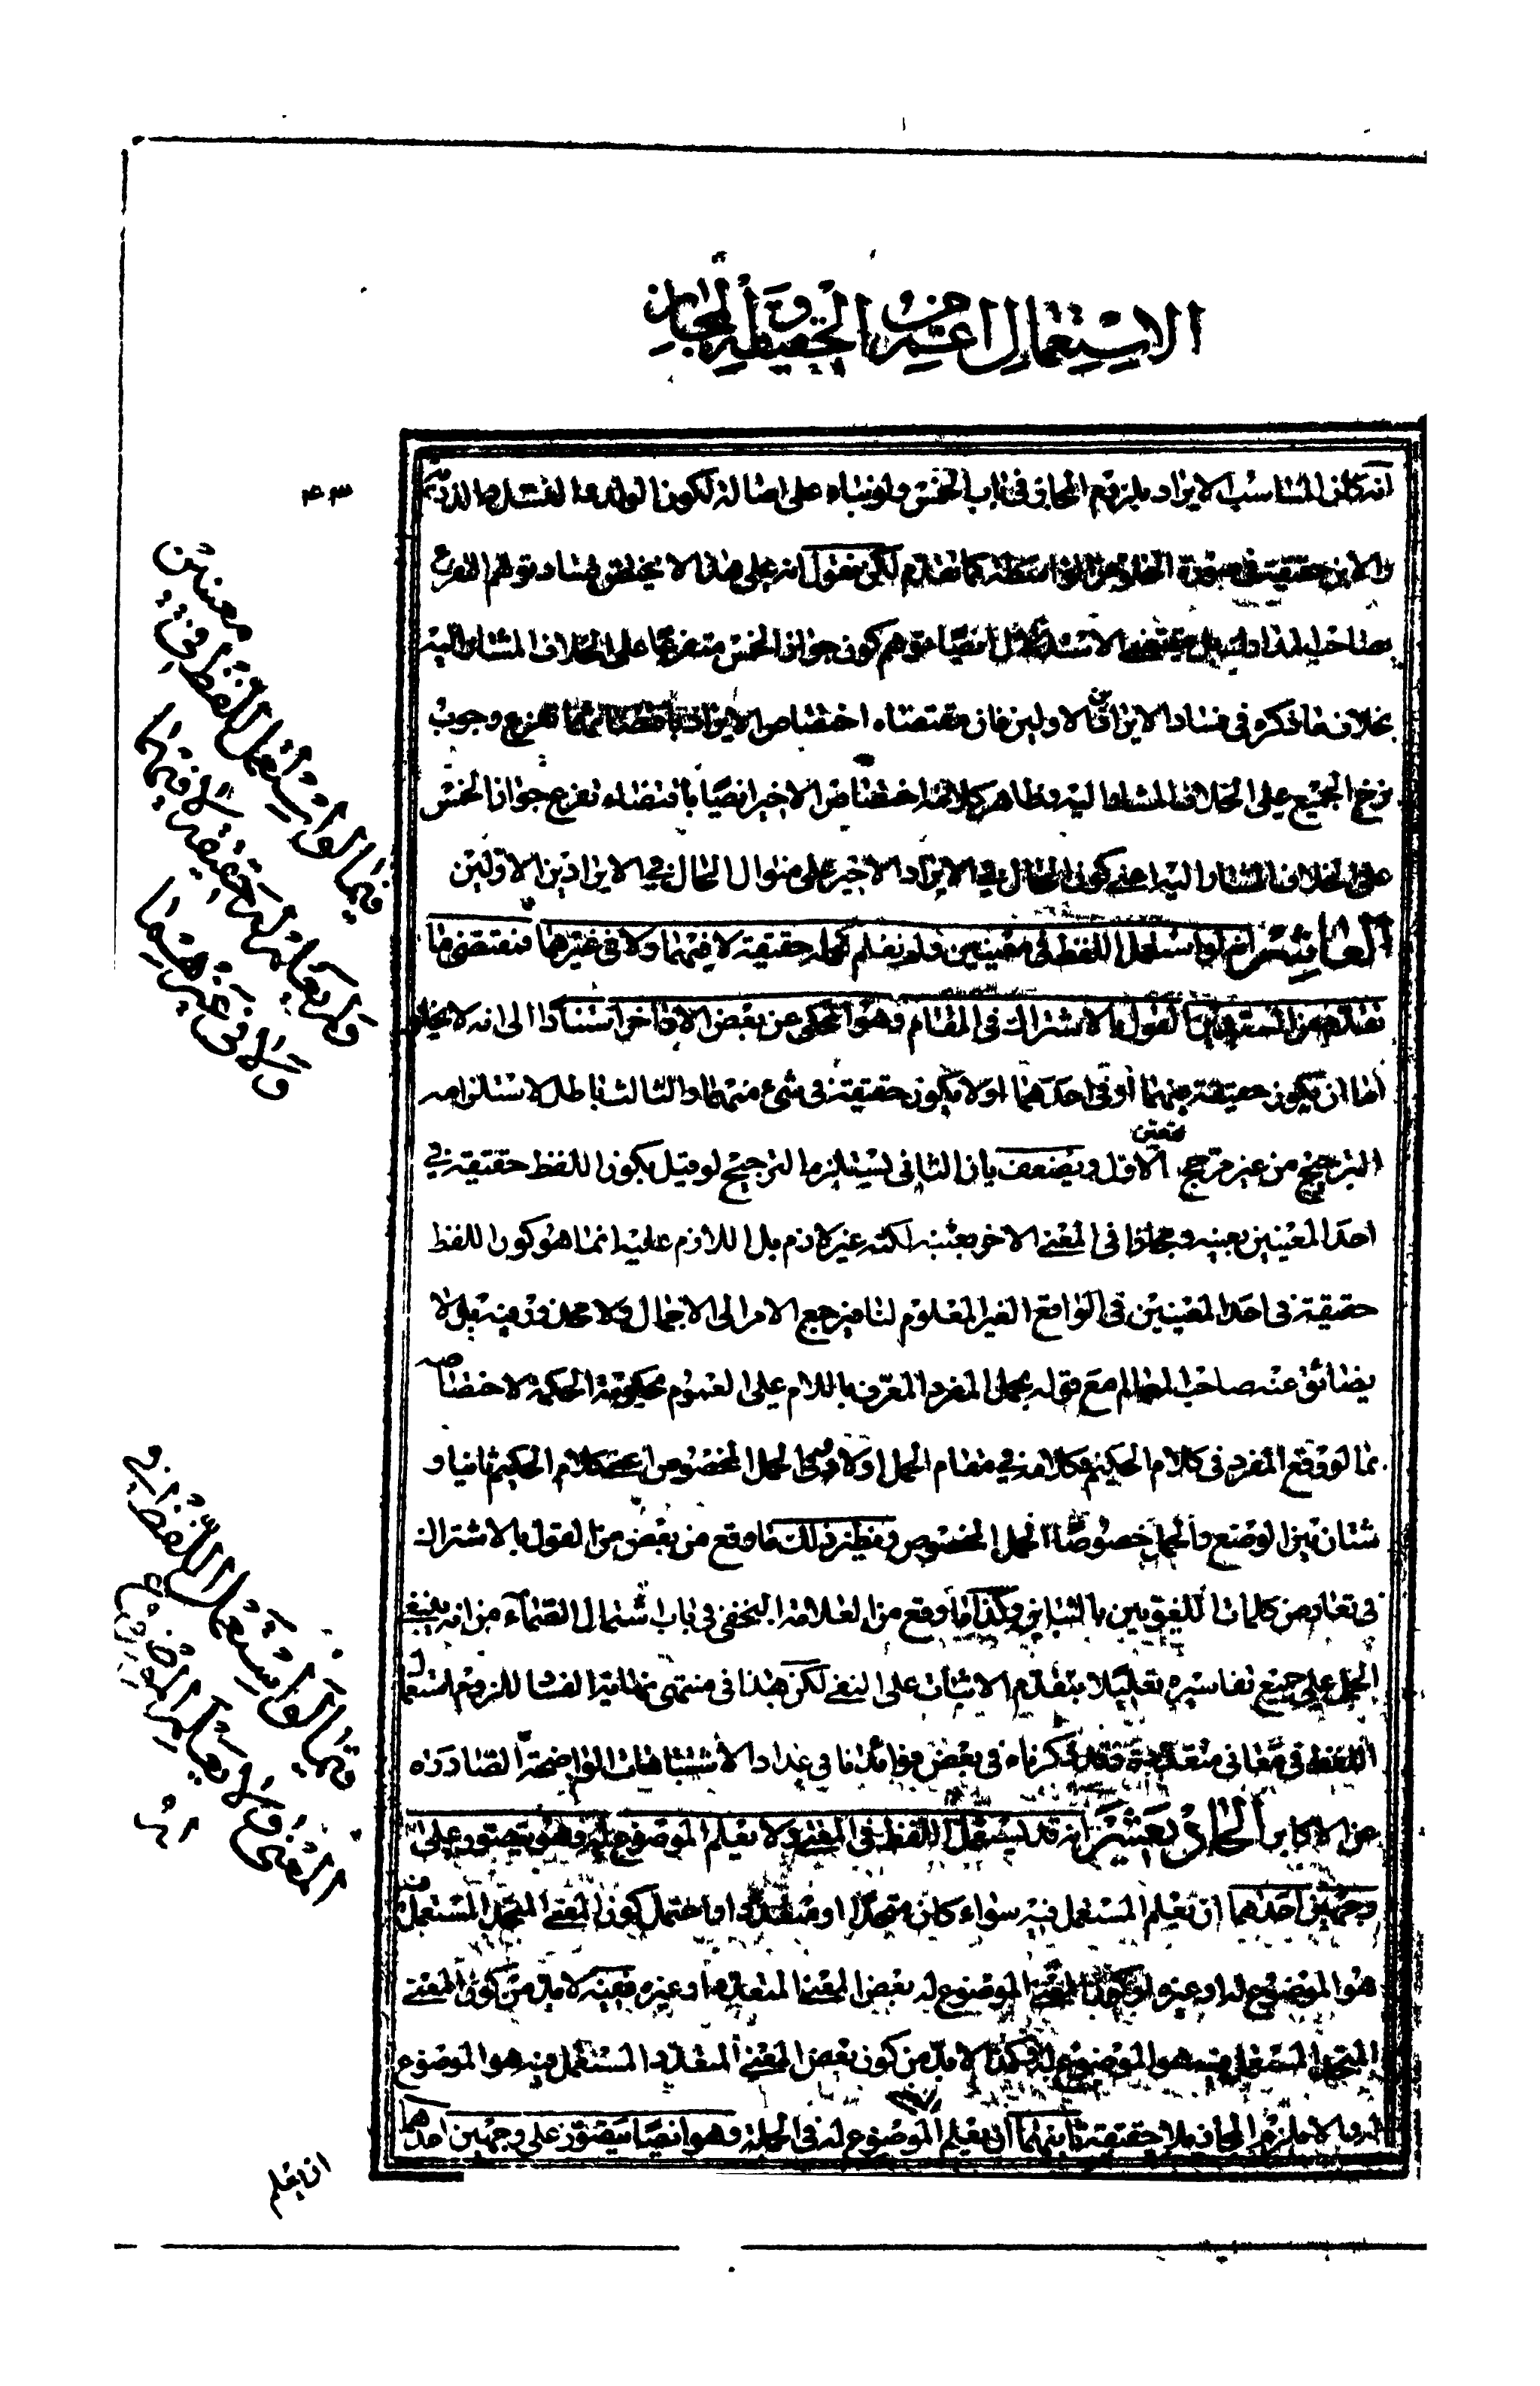 الاستعمال اعم من الحقيقة والمجاز
٤٣
انه كان المناسب الايراد بلزوم المجاز في باب الخمس ولو بناء على اصالة لكون الولد
والابن حقيقة في صورة الخلو عن الواسطة كما تقدم لكن نقول انه على هذا لا يختص فساد توهم التفرع
بصاحب المدارك بل مقتضى الاستدلال ايضا توهم كون جواز الخمس متفرعا على الخلاف المشار اليه
بخلاف ما ذكره في فساد الايرادين الاولين فان مقتضاه اختصاص الايراد باقتضائهما تفرع وجوب
نزح الجميع على الخلاف المشار اليه وظاهر كلامه اختصاص الاخير ايضا باقتضاء تفرع جواز الخمس
على الخلاف المشار اليه اعني كون الحال في الايراد الاخير على منوال الحال في الايرادين الاولين
العاشر انه لو استعمل اللفظ في معنيين ولم نعلم كونه حقيقة لا فيهما ولا في غيرهما فمقتضى ما
تقدم من المرتضى القول بالاشتراك في المقام وهو المحكي عن بعض الاواخر استنادا الى انه لا يخلو
اما ان يكون حقيقة فيهما او في احدهما او لا يكون حقيقة في شيء منهما والثالث باطل لاستلزامه
الترجيح من غير مرجح فتعين الاول ويضعف بان الثاني يستلزم الترجيح لو قيل بكون اللفظ حقيقة في
احد المعنيين بعينه ومجازا في المعنى الاخر بعينه لكنه غير لازم بل اللازم عليه انما هو كون اللفظ
حقيقة في احد المعنيين في الواقع الغير المعلوم لنا فيرجع الامر الى الاجمال ولا محذور فيه بل لا
يضائق عنه صاحب المعالم مع قوله بحمل المفرد المعرف باللام على العموم بمعونة الحكمة لاختصاصه
بما لو وقع المفرد في كلام الحكيم وكلامه في مقام الحمل اولا وفي الحمل المخصوص اعني كلام الحكيم ثانيا و
شتان بين الوضع والحمل خصوصا الحمل المخصوص ونظير ذلك ما وقع من بعض من القول بالاشتراك
في تعارض كلمات اللغويين بالتباين وكذا ما وقع من العلامة النجفي في باب اشتمال الصماء من انه ينبغي
الحمل على جميع تفاسيره تعليلا بتقدم الاثبات على النفي لكن هذا في منتهى نهاية الفساد للزوم استعمال
اللفظ في معاني متعددة وقد ذكرناه في بعض فوائدنا في عداد الاشتباهات الواضحة الصادرة
عن الاكابر الحادي عشر انه قد يستعمل اللفظ في المعنى ولا يعلم الموضوع له وهو يتصور على
وجهين احدهما ان يعلم المستعمل فيه سواء كان متحدا او متعددا واحتمل كون المعنى المتحد المستعمل فيه
هو الموضوع له او غيره او كون المعنى الموضوع له بعض المعنى المتعدد او غيره فحينئذ لا بد من كون المعنى
المتحد المستعمل فيه هو الموضوع له وكذا لا بد من كون بعض المعنى المتعدد المستعمل فيه هو الموضوع
له والا يلزم المجاز بلا حقيقة ثانيهما ان يعلم الموضوع له في الجملة وهو ايضا يتصور على وجهين احدهما
ان يعلم
فيما لو استعمل اللفظ في معنيين
ولم يعلم كونه حقيقة لا فيهما
ولا في غيرهما
فيما لو استعمل اللفظ في
المعنى ولا يعلم الموضوع
له